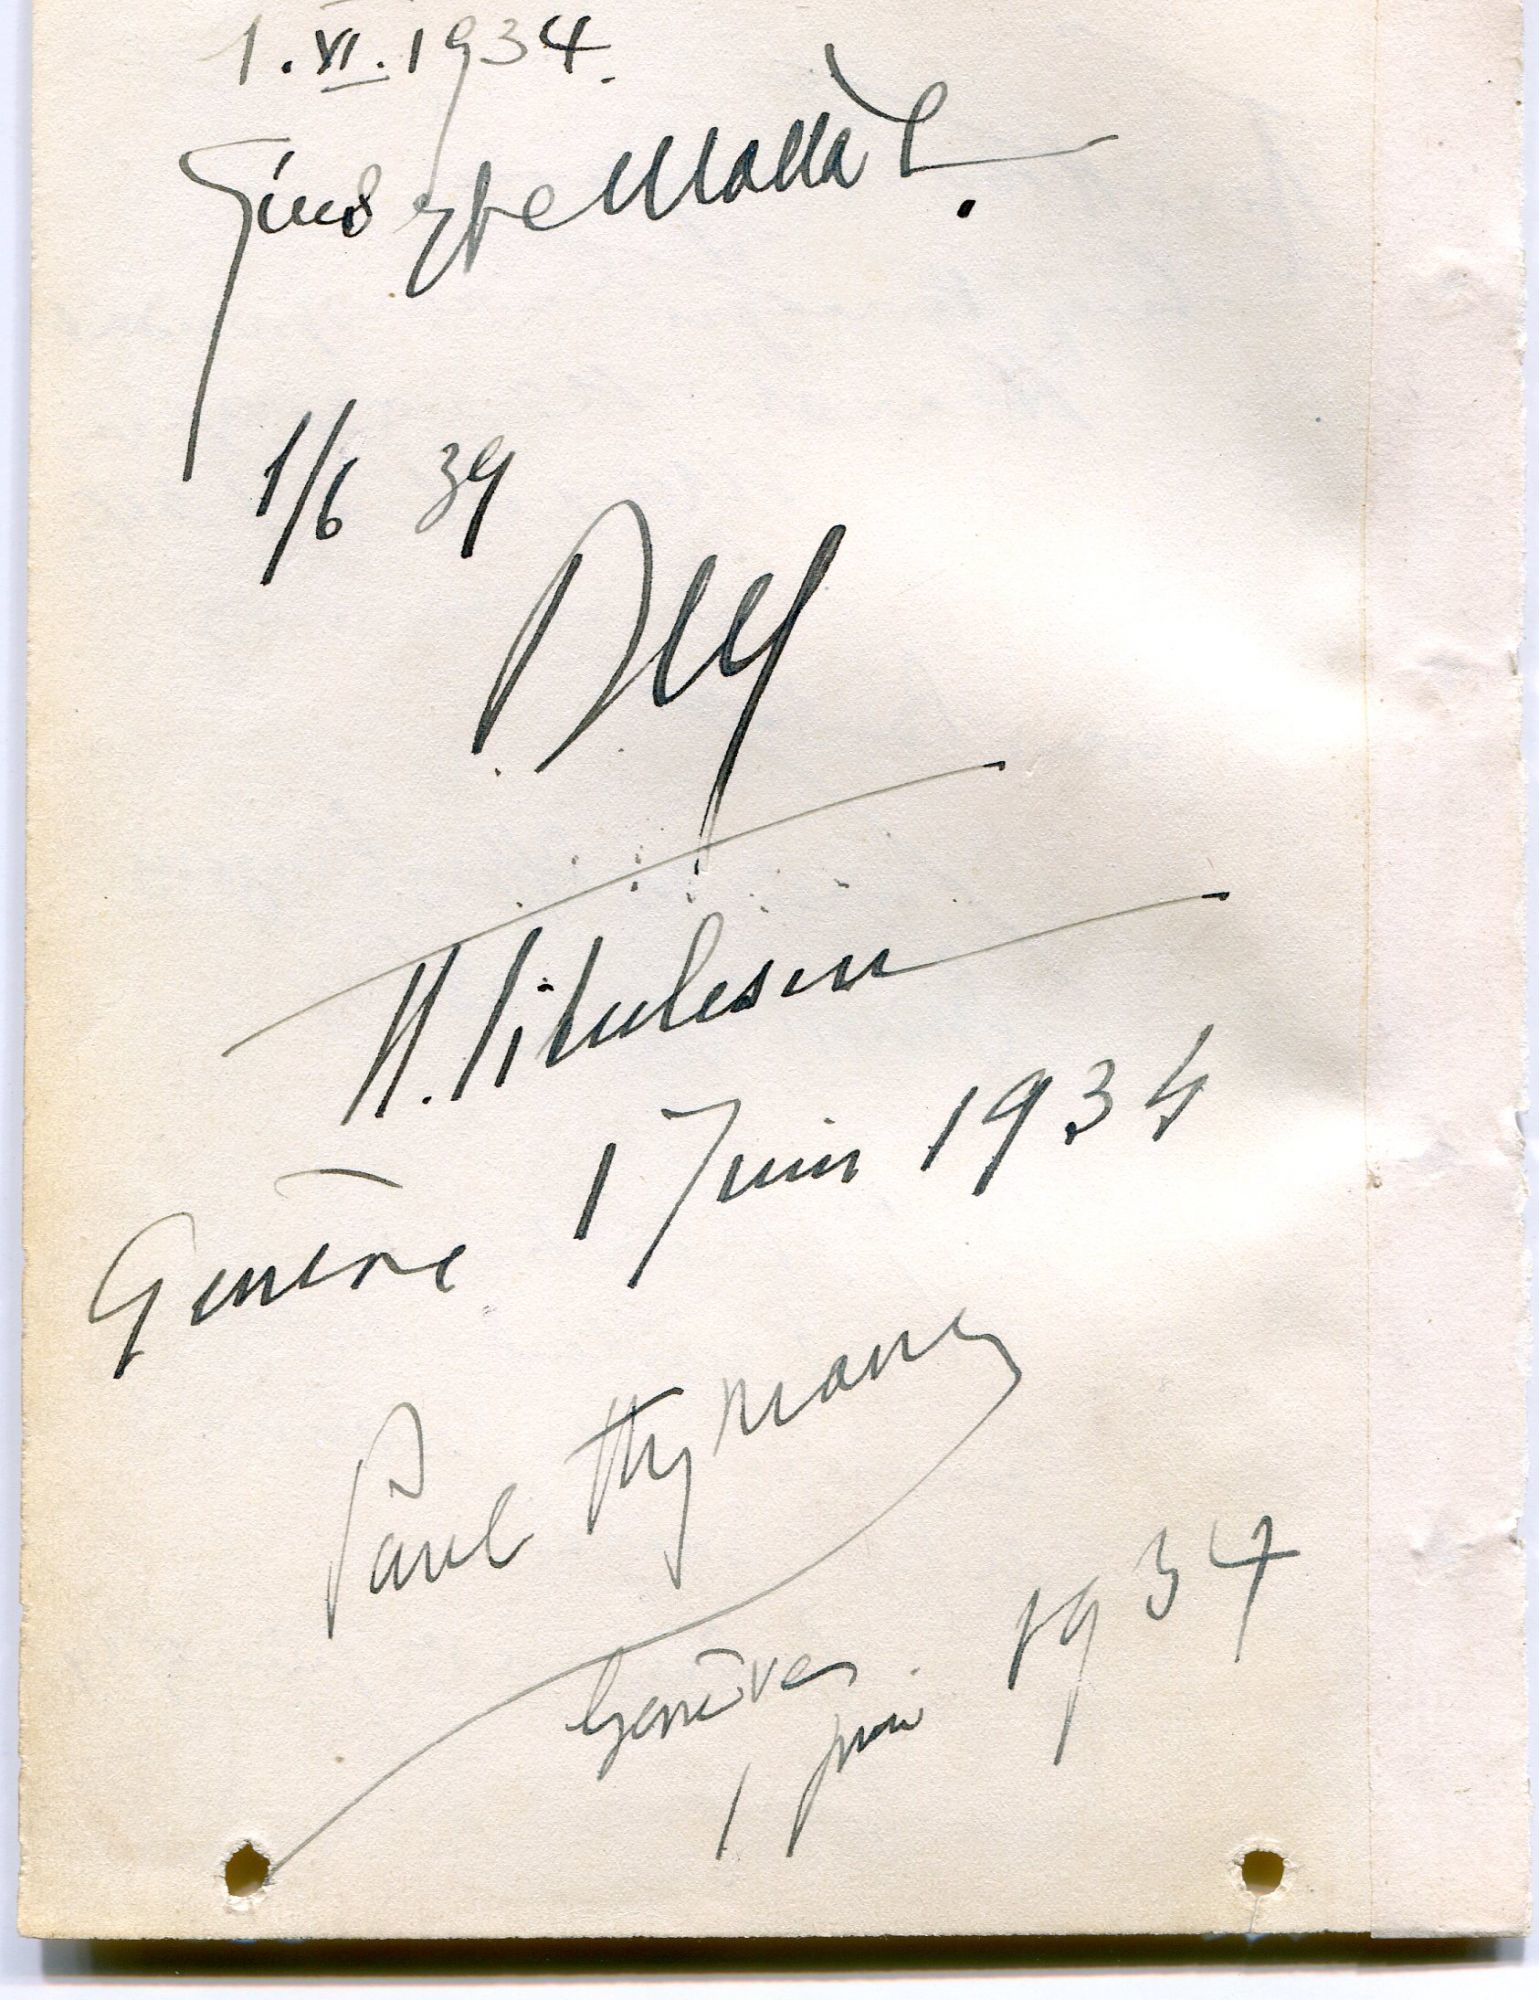 1. XI. 1934.
1/6 39
N. Titulescu
Genève 1 Juin 1934
Paul Hymans
Genève
1 juin 1934